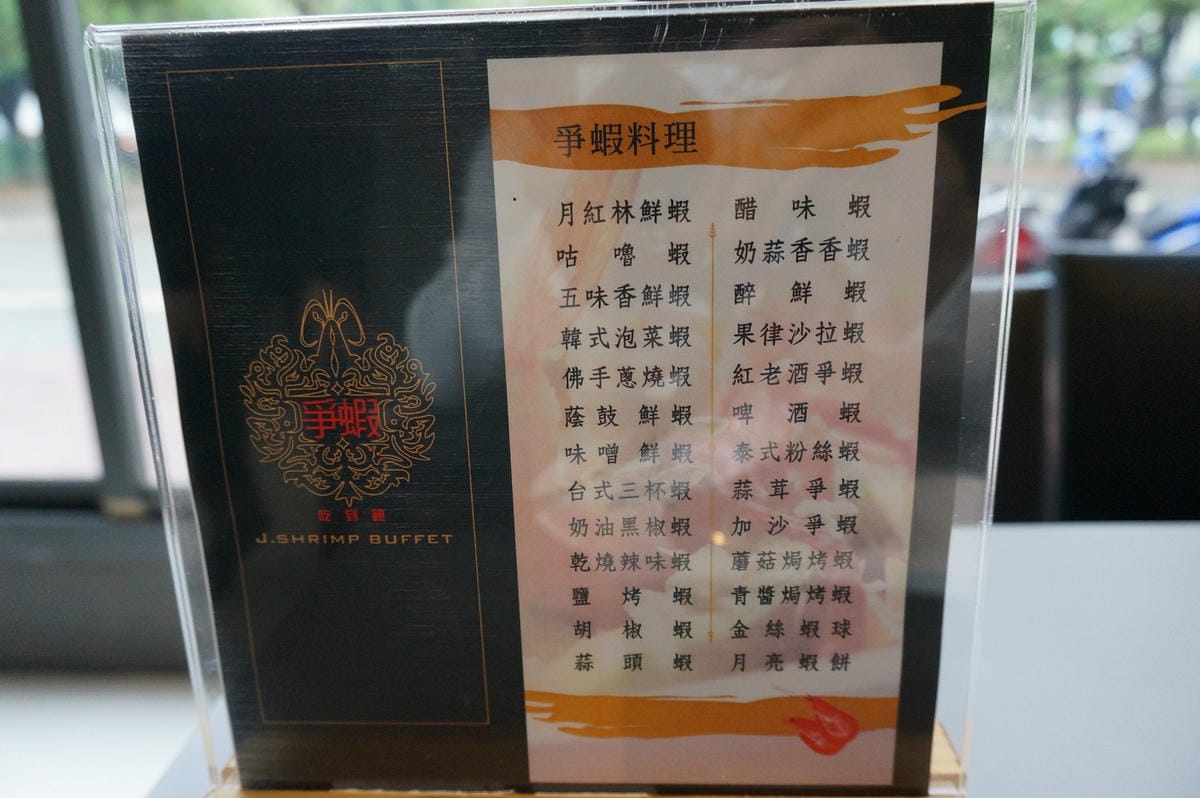 爭蝦
吃到飽
J.SHRIMP BUFFET
爭蝦料理
月紅林鮮蝦
咕嚕蝦
五味香鮮蝦
韓式泡菜蝦
佛手蔥燒蝦
蔭鼓鮮蝦
味噌鮮蝦
台式三杯蝦
奶油黑椒蝦
乾燒辣味蝦
鹽烤蝦
胡椒蝦
蒜頭蝦
醋味蝦
奶蒜香香蝦
醉鮮蝦
果律沙拉蝦
紅老酒爭蝦
啤酒蝦
泰式粉絲蝦
蒜茸爭蝦
加沙爭蝦
蘑菇焗烤蝦
青醬焗烤蝦
金絲蝦球
月亮蝦餅